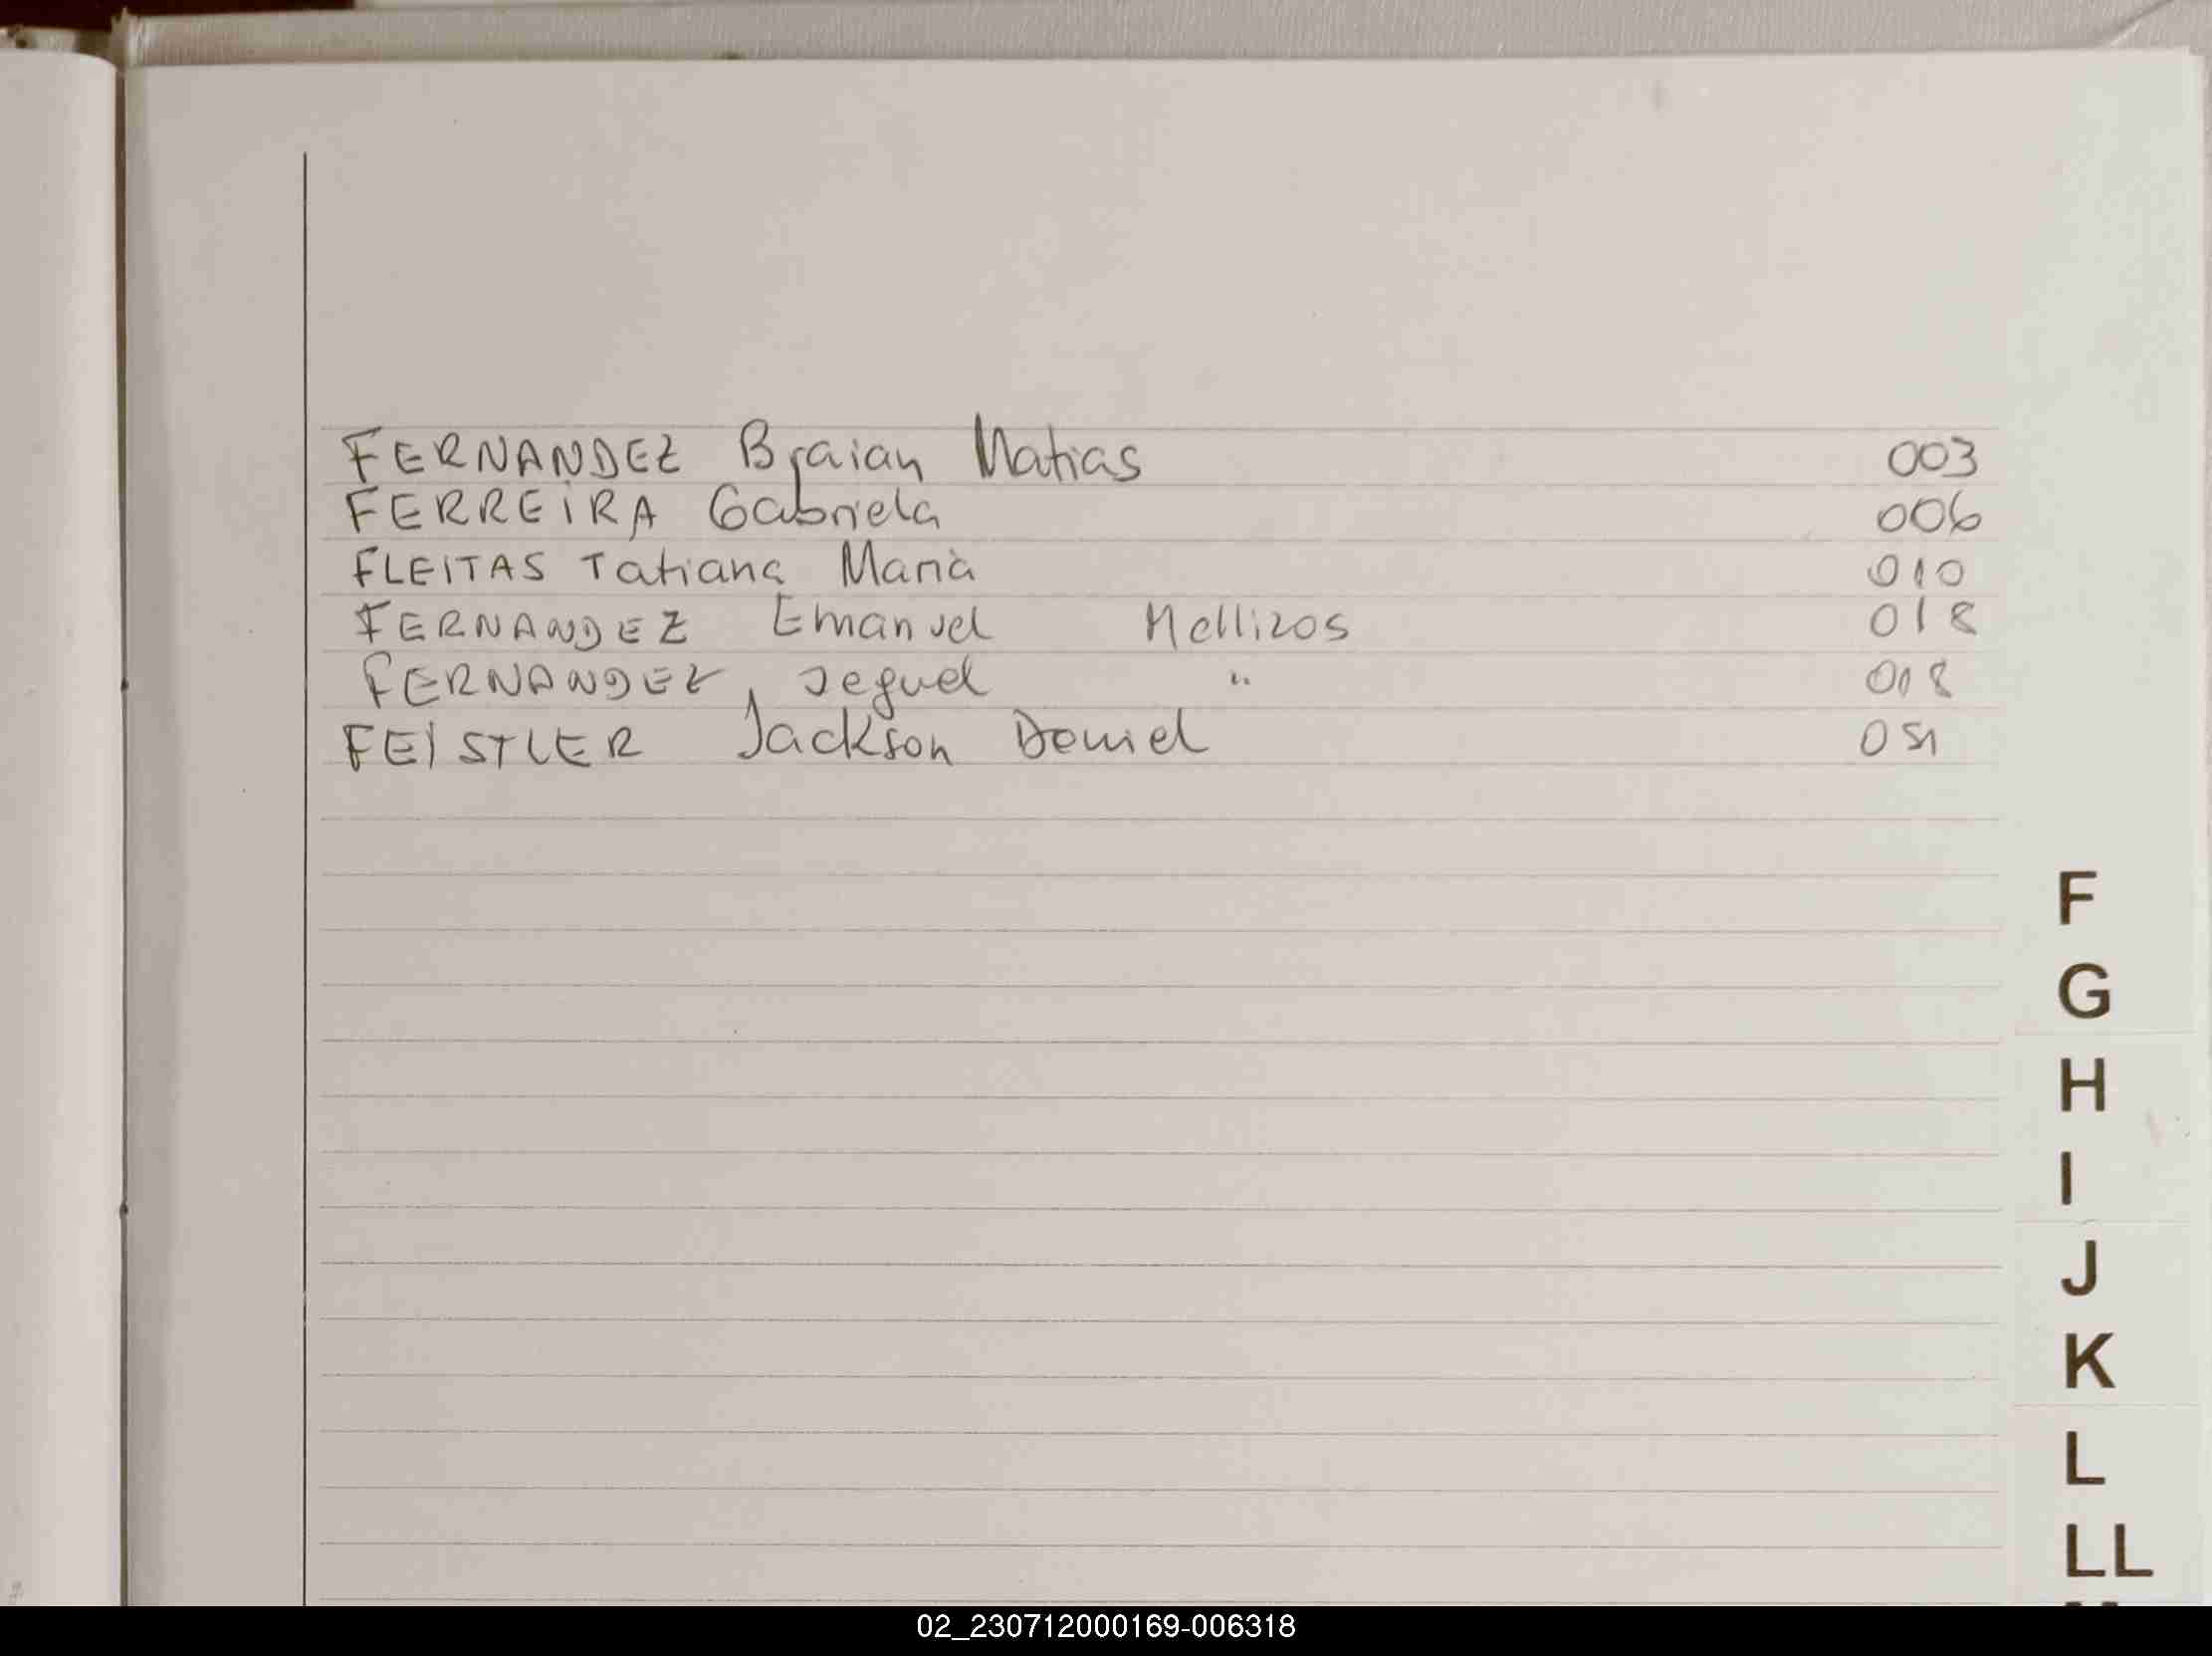 FERNANDEZ Braian Matias 003
FERREIRA Gabriela 006
FLEITAS Tatiana Maria 010
FERNANDEZ Emanuel Mellizos 018
FERNANDEZ, " 018
FEISTLER Jackson Daniel 051
F
G
H
I
J
K
L
LL
02_230712000169-006318